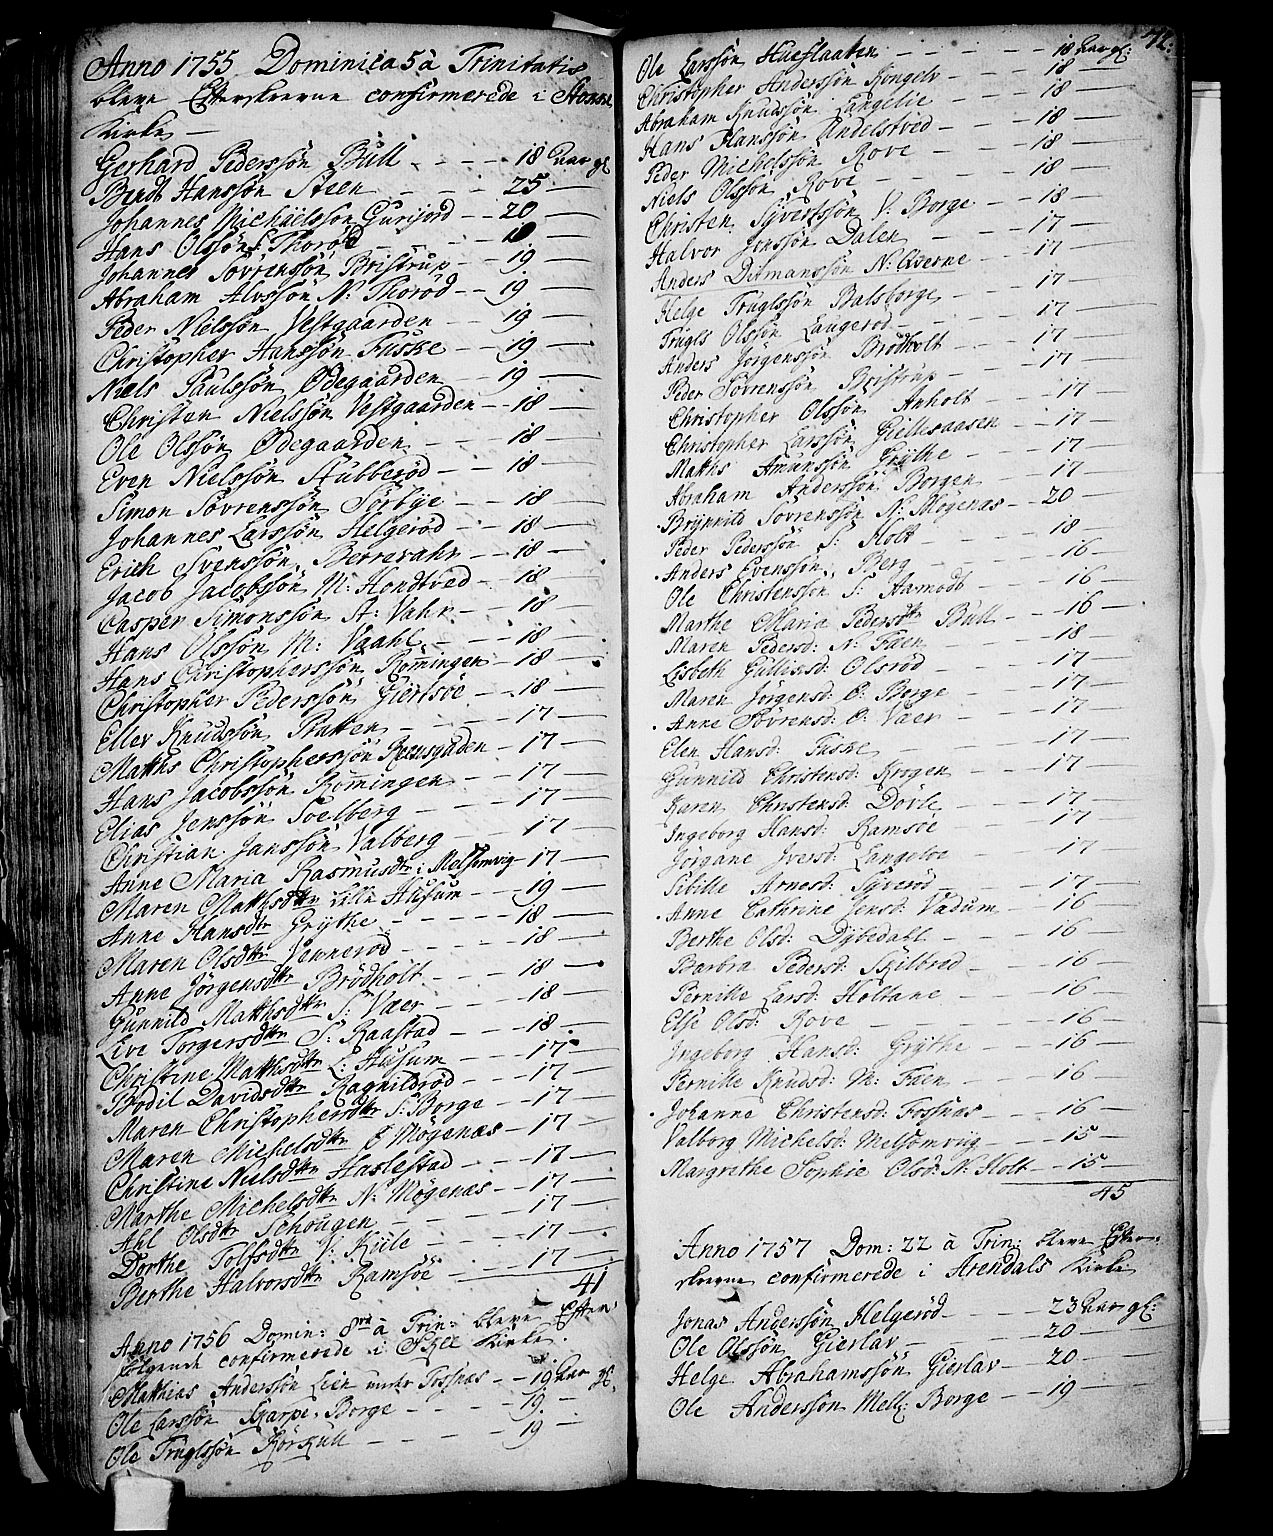 Anno 1755 Dominica 5 à Trinitatis
bleve Efterskrevne confirmerede i
Kirke
Gerhard Pederssön Bull - - - 18 Aar gl
Bendt Hanssön Steen - - - 25 -
Johannes Michaëlssön Gurijord - - 20 -
Hans Olssön Thoröd - - -
Johannes Sövrenssön Bristrup - - 19 -
Abraham Alvssön N: Thoröd - - 19 -
Peder Nielssön Vestgaarden - - 19 -
Christopher Hanssön Fuske - - 19 -
Niels Paulssön Ödegaarden - - 19 -
Christen Nielssön Vestgaarden - - 18 -
Ole Olssön Ödegaarden - - - 18 -
Even Nielssön Stubberöd - - 18 -
Simon Sövrenssön Sörbye - - - 18 -
Johannes Larssön Helgeröd - - 18 -
Erich Svenssön Berrevahr - - 18 -
Jacob Jacobssön M: Hondtved - - 18 -
Casper Simonssön A: Vahr - - - 18 -
Hans Olssön M: Vaahl - - - 18 -
Hans Christopherssön Römingen - 18 -
Christopher Pederssön Giertsöe - - 18 -
Eller Knudssön Pratten - - - 17 -
Matths Christopherssön - 17 -
Hans Jacobssön Römingen - - 17 -
Elias Jenssön Soelberg - - - 17 -
Christian Janssön Valberg - - 17 -
Anne Maria Rasmusdtr i Melsomvig - 17 -
Maren Matthsdtr Lille Husum - - 19 -
Anne Hansdtr Grythe - - - 18 -
Maren Olsdtr Venneröd - - - 18 -
Anne Jörgensdtr Brödholt - - - 18 -
Gunnild Matthsdtr S: Væer - - - 18 -
Live Torgersdtr S: Raastad - - - 18 -
Christine Matthsdtr L: Husum - - - 17 -
Bodil Davidsdtr Ragnildröd - - - 17 -
Maren Christophersdtr S: Borge - - 17 -
Maren Michelsdtr Ö Mögenæs - - 17 -
Christine Nielsdtr Haslestad - - - 17 -
Marthe Michelsdtr N: Mögenæs - - 17 -
Ahl Olsdtr Schougen - - - 17 -
Dorthe Tolfsdtr V: Kiile - - - 17 -
Berthe Halvorsdtr Ramsöe - - 17 -
41
Anno 1756 Domin: 8va à Trin: bleve Efter-
fölgende confirmerede i Skee Kirke.
Matthias Anderssön Leen under Fossnæs - - 19 Aar gl.
Ole Larssön Skarpe-Borge - - - 19 -
Ole Truglssön Körkull - - - 19 -
42.
Ole Larssön Hueslaaten - - - 18 Aar gl:
Christopher Anderssön Kongelv - - - 18 -
Abraham Knudssön Langelie - - - 18 -
Hans Hanssön Undelstved - - - 18 -
Peder Michelssön Rove - - - 18 -
Niels Olssön Rove - - - 18 -
Christen Syvertssön V: Borge - - 18 -
Halvor Jonssön Dalen - - - 17 -
Anders Ditmanssön N: Qverne - - - 17 -
Helge Truglssön Balsberge - - - 17 -
Trugls Olssön Langeröd - - - 17 -
Anders Jörgenssön Brödholt - - - 17 -
Peder Sövrenssön Bristrup - - - 17 -
Christopher Olssön Anholt - - - 17 -
Christopher Larssön Gillesaasen - - 17 -
Matths Amunssön Grythe - - - 17 -
Abraham Anderssön Borgen - - - 17 -
Brynnild Sövrenssön N: Mögenæs - 20 -
Peder Pederssön S: Holt - - - 18 -
Anders Evenssön Berg - - - 16 -
Ole Christenssön S: Aamodt - - 16 -
Marthe Maria Pedersdtr Bull - - 16 -
Maren Pedersd: N: Faen - - - 18 -
Lisbeth Gulliksd: Olsröd - - - 17 -
Maren Jörgensd: Ö: Berge - - - 17 -
Anne Sövrensd: Ö: Væer - - - 17 -
Elen Hansd: Fuske - - - 17 -
Gunnild Christensd: Krogen - - - 17 -
Karen Christensd: Dövle - - - 17 -
Ingeborg Hansd: Ramsöe - - - 17 -
Jörgane Iversd: Langeloe - - - 17 -
Sibille Arnesd: Syveröd - - - 17 -
Anne Cathrine Jensd: Vadum - - 16 -
Berthe Olsd: Dybedahl - - - 16 -
Barbra Pedersd: Skilbred - - - 16 -
Pernille Larsd: Holtane - - - 16 -
Else Olsd: Rove - - - 16 -
Ingeborg Hansd: Grythe - - - 16 -
Pernille Knudsd: M: Faen - - - 16 -
Johanne Christensd: Fossnæs - - 16 -
Valborg Michelsd: Melsomviig - - 15 -
Margrethe Sophie Olsd: N: Holt - - 15 -
45
Anno 1757 Dom: 22 à Trin: bleve Efter-
skrevne confirmerede i Arendals Kirke
Jonas Anderssön Helgeröd - - - 23 Aar gl:
Ole Olssön Gierlav - - - 20 -
Helge Abrahamssön Gierlav - - 20 -
Ole Anderssön Mell: Borge - - 19 -